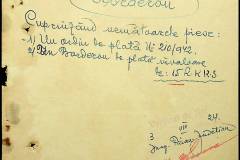 Borderou
Cuprinzând următoarele piese:
-1) Un ordin de plată No 210/942.
-2) Un Borderou de plată în valoare
de: 15 R.K.R.S
3 VIII 24.
Ing.